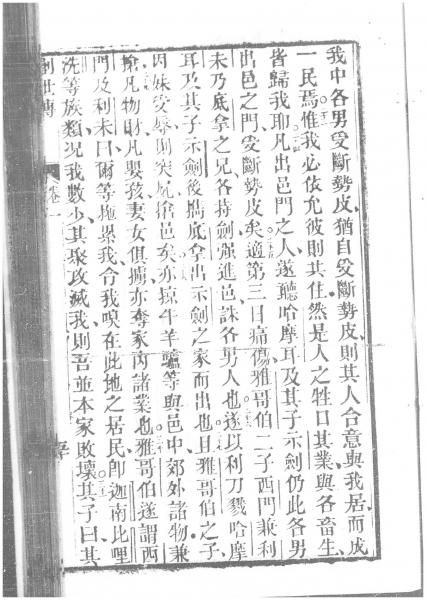 我中各男受斷勢皮猶自受斷勢皮則其人合意與我居而成
一民焉惟我必依允彼則其住然是人之牲口其業與各畜生
皆歸我耶凡出邑門之人遂聽哈摩耳及其子示劍仍此各男
出邑之門受斷勢皮矣適第三日痛傷雅哥伯二子西門兼利
未乃底拿之兄各持劍强進邑誅各男人也遂以利刀戮哈摩
耳及其子示劍後攜底拿出示劍之家而出也且雅哥伯之子
因妹受辱則突屍搶邑矣亦掠牛羊驢等與邑中郊外諸物兼
搶凡物財凡嬰孩妻女俱擄亦奪家內諸業也雅哥伯遂謂西
門及利未曰爾等拖累我令我嗅在此地之居民即迦南比哩
洗等族類况我數少其聚攻滅我則吾並本家敗壞其子曰其
創世傳 卷一